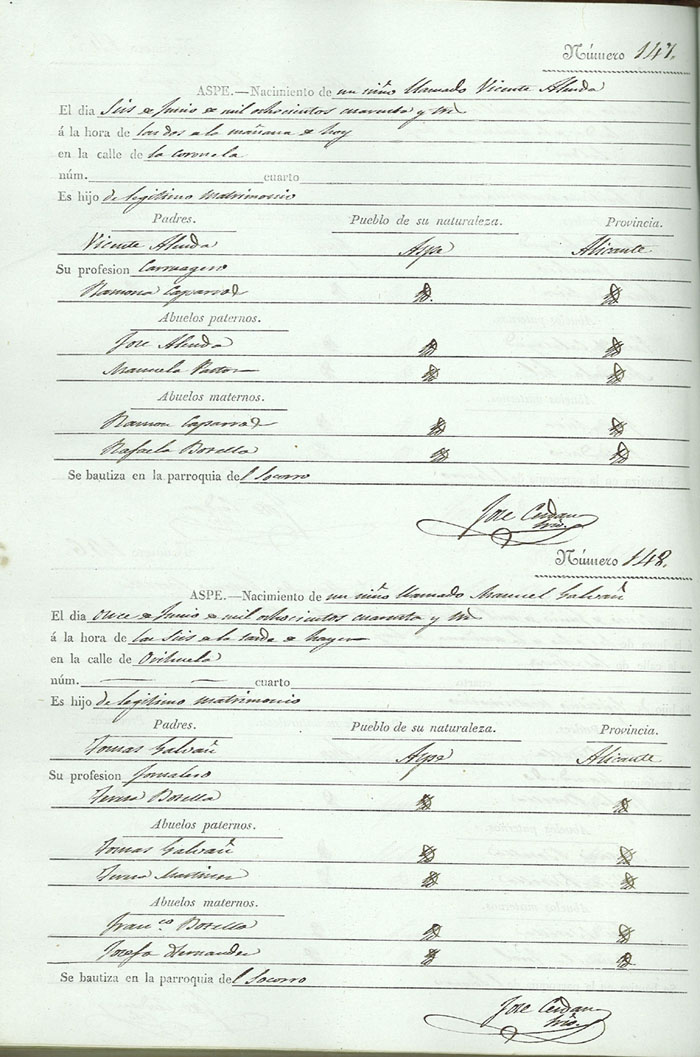 Número 147.
ASPE.—Nacimiento de un niño llamado Vicente Alenda
El dia Seis de Junio de mil ochocientos cuarenta y tres
á la hora de las dos de la mañana de hoy
en la calle de la coronela
núm. cuarto
Es hijo de legitimo matrimonio
Padres. Pueblo de su naturaleza. Provincia.
Vicente Alenda Aspe Alicante
Su profesion Carruagero
Ramona Caparros id. id.
Abuelos paternos.
Jose Alenda id. id.
Manuela Pastor id. id.
Abuelos maternos.
Ramon Caparros id. id.
Rafaela Botella id. id.
Se bautiza en la parroquia del Socorro
Jose Cerdan
Número 148.
ASPE.—Nacimiento de un niño llamado Manuel Galvañ
El dia once de Junio de mil ochocientos cuarenta y tres
á la hora de las seis de la tarde de hayer
en la calle de Orihuela
núm. — — cuarto
Es hijo de legitimo matrimonio
Padres. Pueblo de su naturaleza. Provincia.
Tomas Galvañ Aspe Alicante
Su profesion Jornalero
Teresa Botella id. id.
Abuelos paternos.
Tomas Galvañ id. id.
Teresa Martinez id. id.
Abuelos maternos.
Franco. Botella id. id.
Josefa Hernandez id. id.
Se bautiza en la parroquia del Socorro
Jose Cerdan